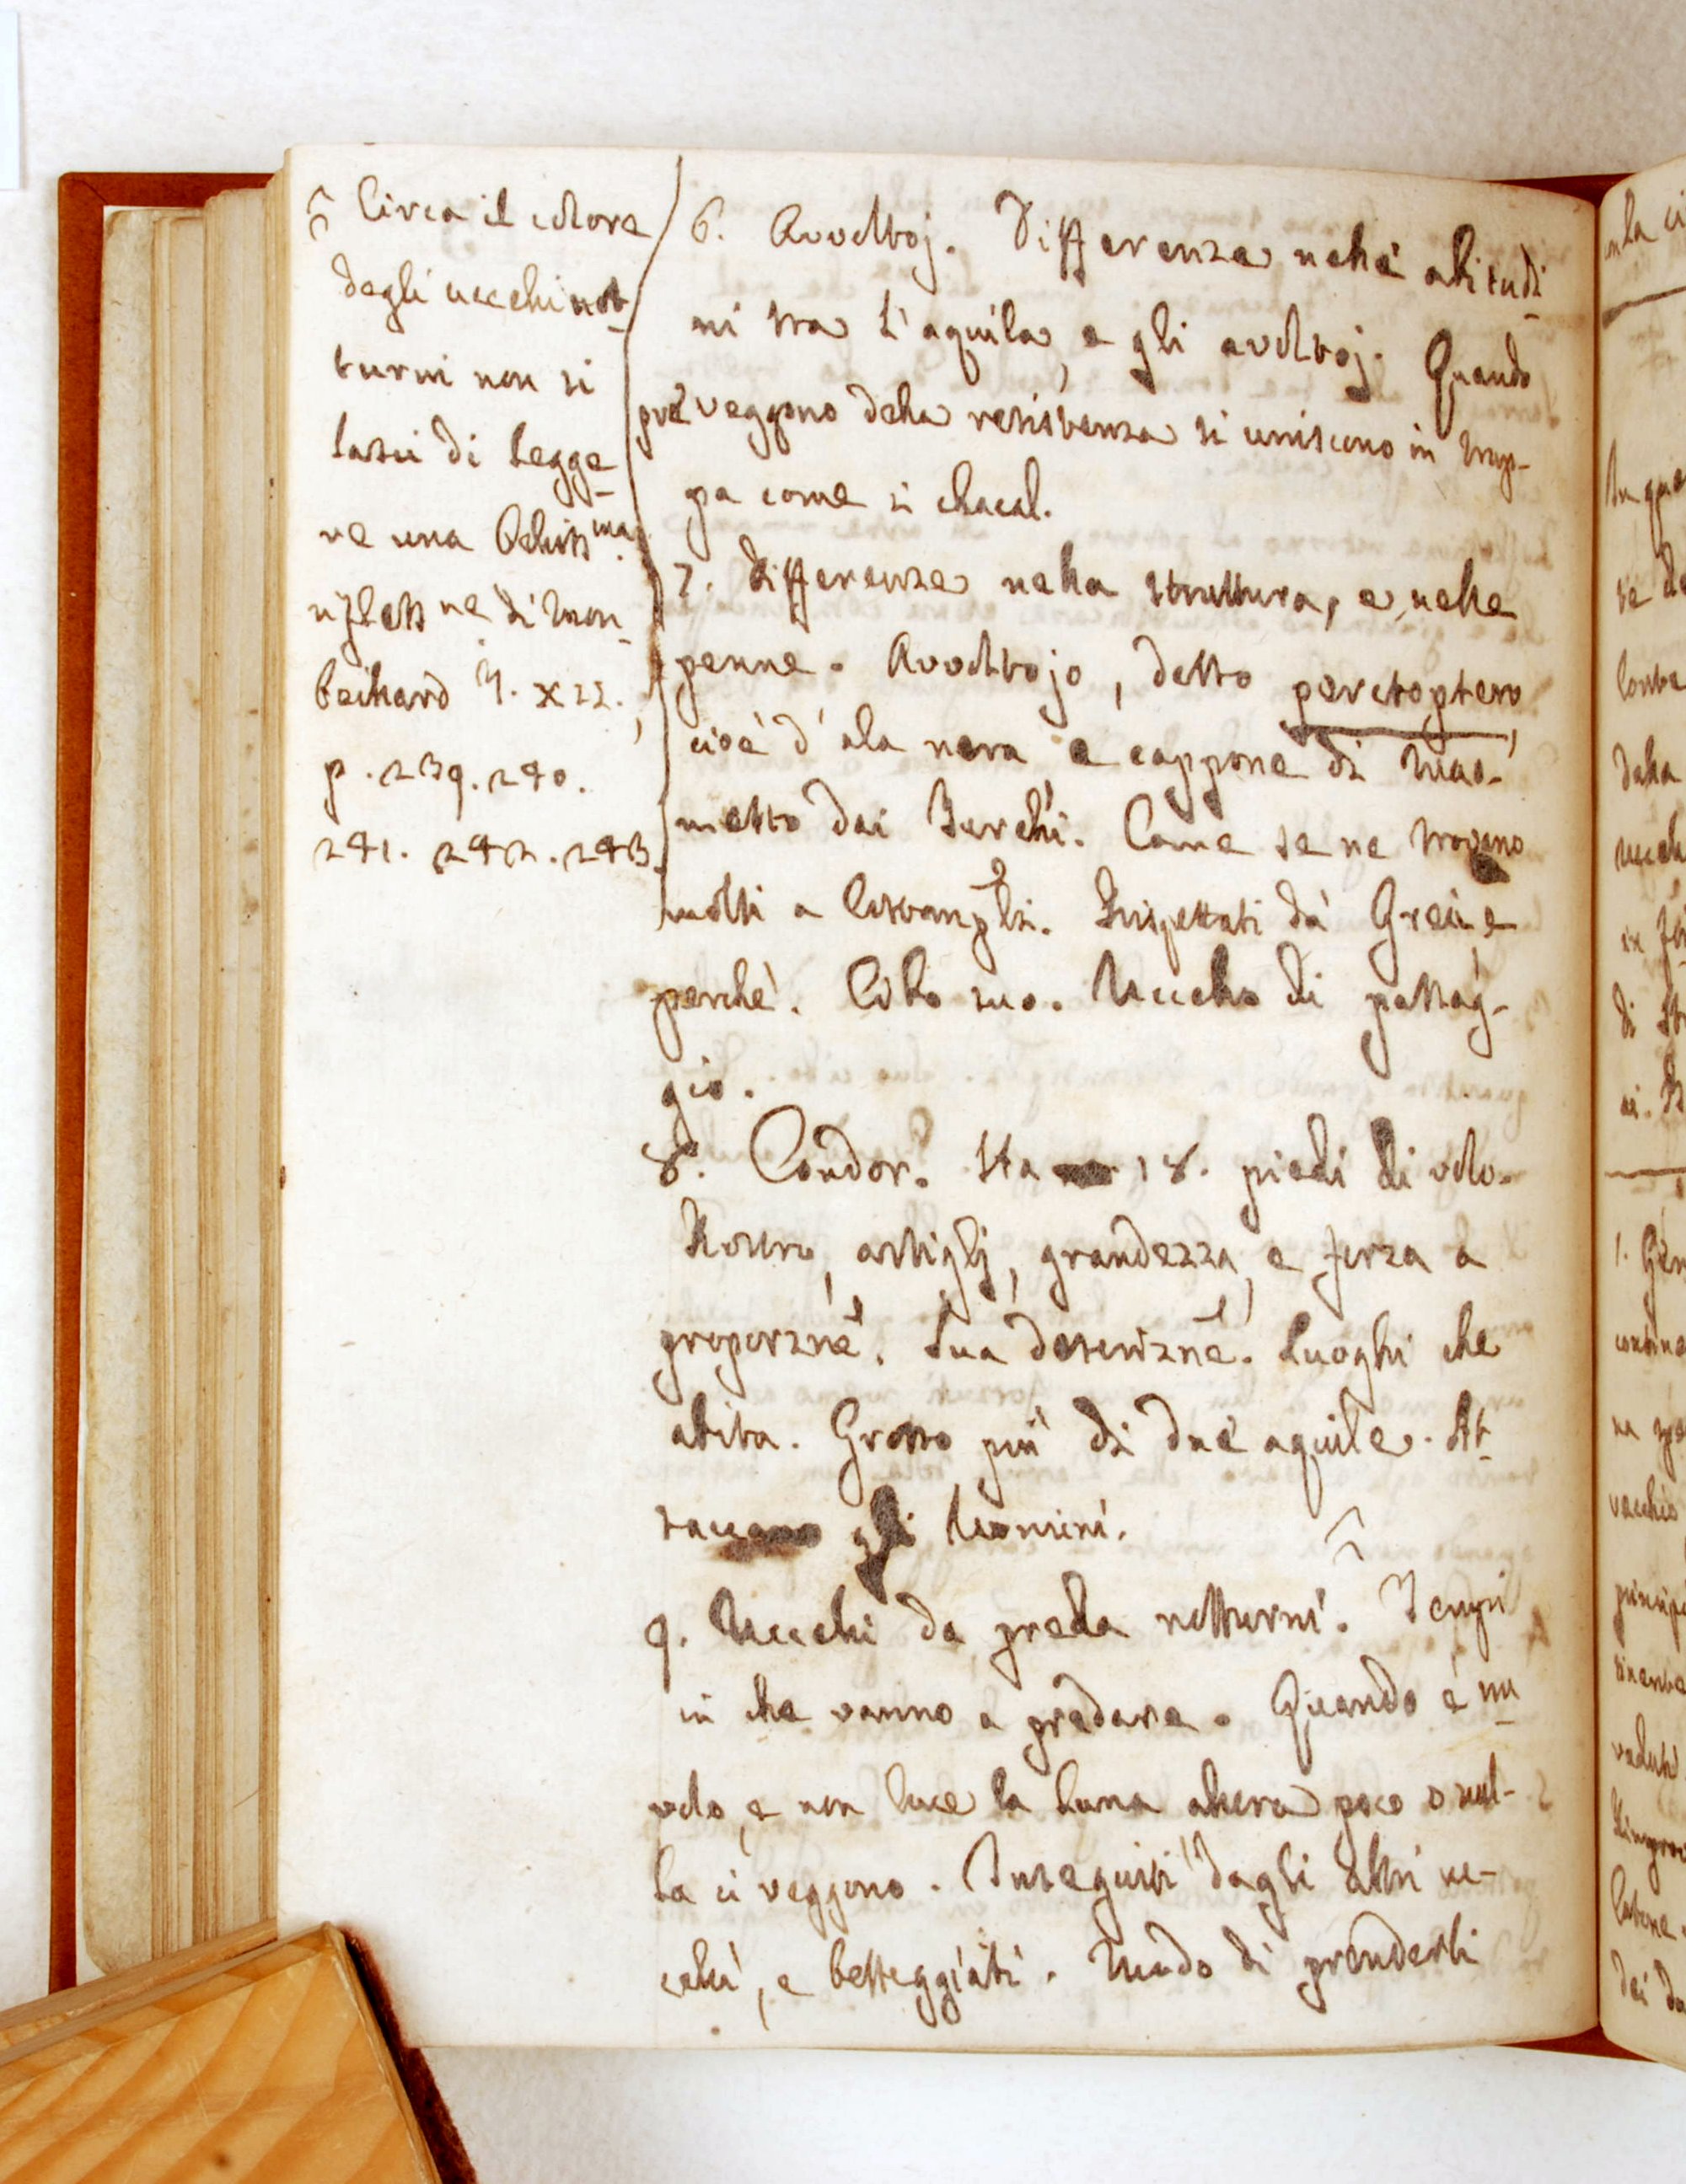 Circa il colore
degli uccelli not-
turni non si
lasci di legge-
re una bellissma
rifless ne di Mon-
beillard T. XII.
p. 239. 240.
241. 242. 243.
6. Avvoltoj. Differenza nelle abitudi-
ni tra l'aquila, e gli avoltoj. Quando
preveggono della resistenza si uniscono in trup-
pa come i chacal.
7. Differenza nella struttura, e nelle
penne. Avvoltojo, detto percnoptero,
cioè d'ala nera e cappone di Mao-
metto dai Turchi. Come se ne trovano
molti a Costanpli. Rispettati da' Greci e
perchè. Cibo suo. Uccello di passag-
gio.
8. Condor. Ha 18. piedi di volo.
Rostro, artiglj, grandezza, e forza a
proporzne. Sua descrizne. Luoghi che
abita. Grosso più di due aquile. At-
tacca gli Uomini.
9. Uccelli da preda notturni. Tempi
in che vanno a predare. Quando è nu-
volo, e non luce la Luna allora poco o nul-
la ci veggono. Inseguiti dagli altri uc-
celli, e beffeggiati. Modo di prenderli